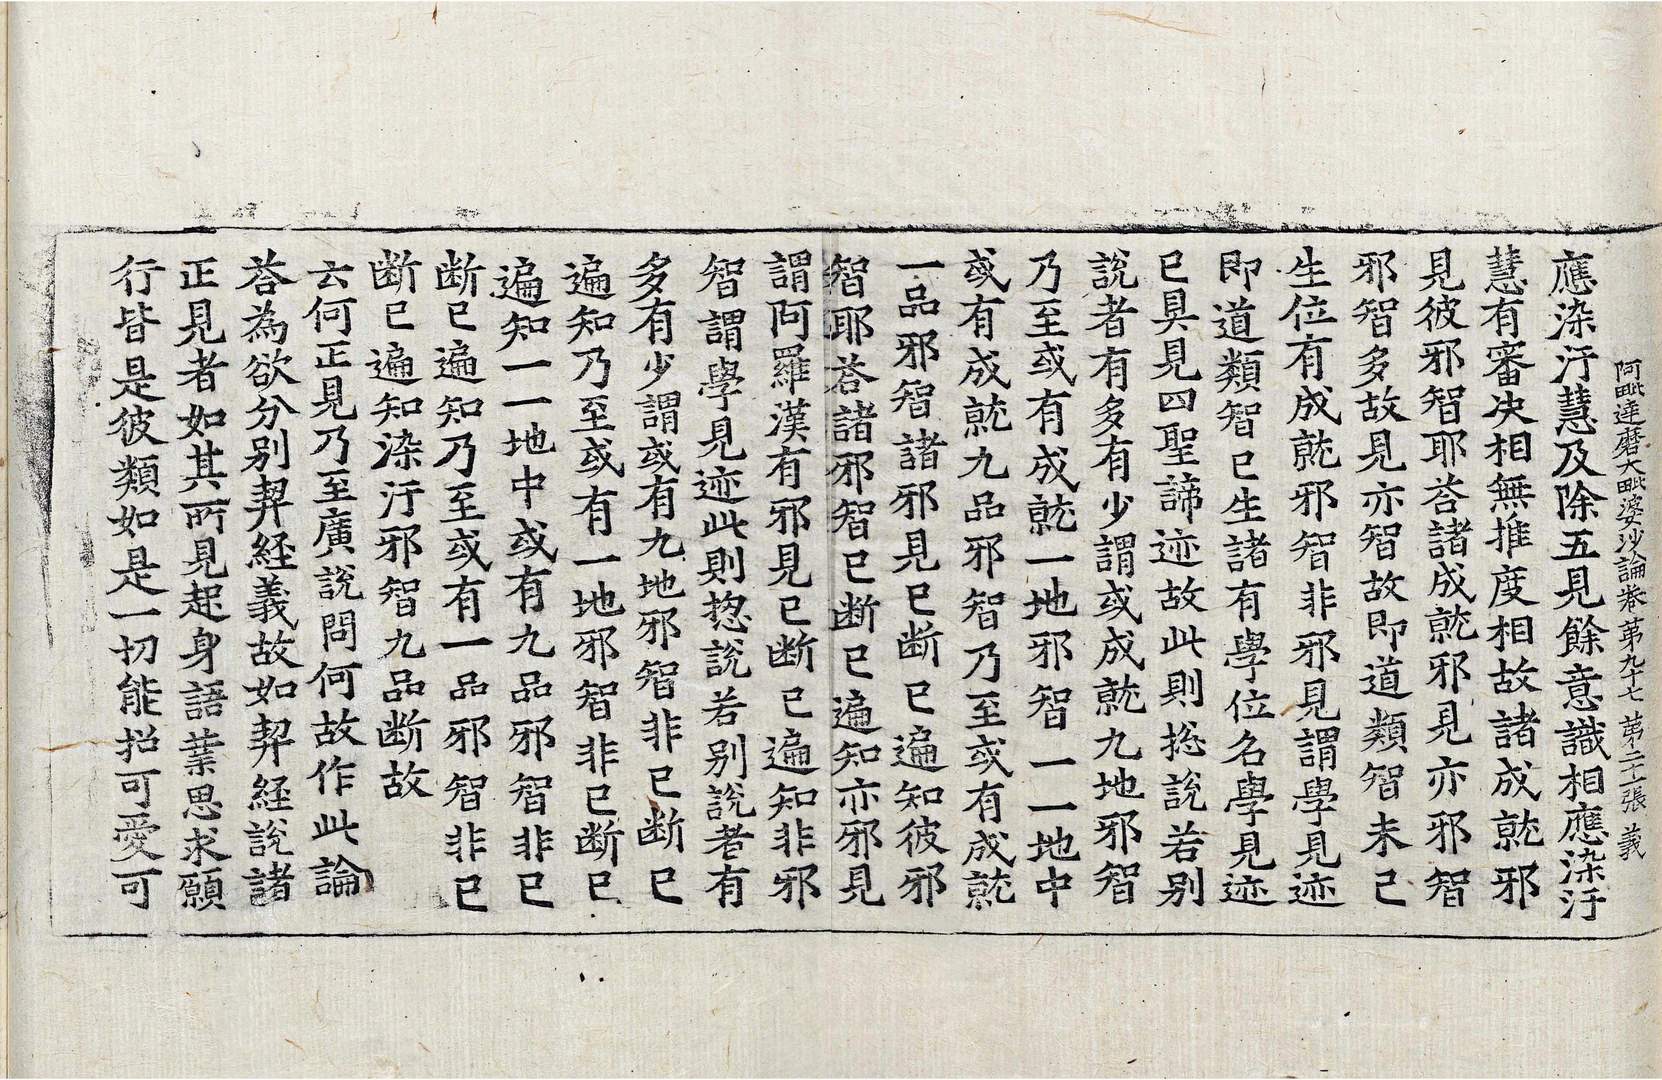 阿毗達磨大毗婆沙論卷第九十七 第二十張 義
應染汙慧及除五見餘意識相應染汙
慧有審決相無推度相故諸成就邪
見彼邪智耶荅諸成就邪見亦邪智
邪智多故見亦智故即道類智未已
生位有成就邪智非邪見謂學見迹
即道類智已生諸有學位名學見迹
已具見四聖諦迹故此則捴說若別
說者有多有少謂或成就九地邪智
乃至或有成就一地邪智一一地中
或有成就九品邪智乃至或有成就
一品邪智諸邪見已断已遍知彼邪
智耶荅諸邪智已断已遍知亦邪見
謂阿羅漢有邪見已断已遍知非邪
智謂學見迹此則捴說若別說者有
多有少謂或有九地邪智非已断已
遍知乃至或有一地邪智非已断已
遍知一一地中或有九品邪智非已
断已遍知乃至或有一品邪智非已
断已遍知染汙邪智九品断故
云何正見乃至廣說問何故作此論
荅為欲分別契経義故如契経說諸
正見者如其所見起身語業思求願
行皆是彼類如是一切能招可愛可